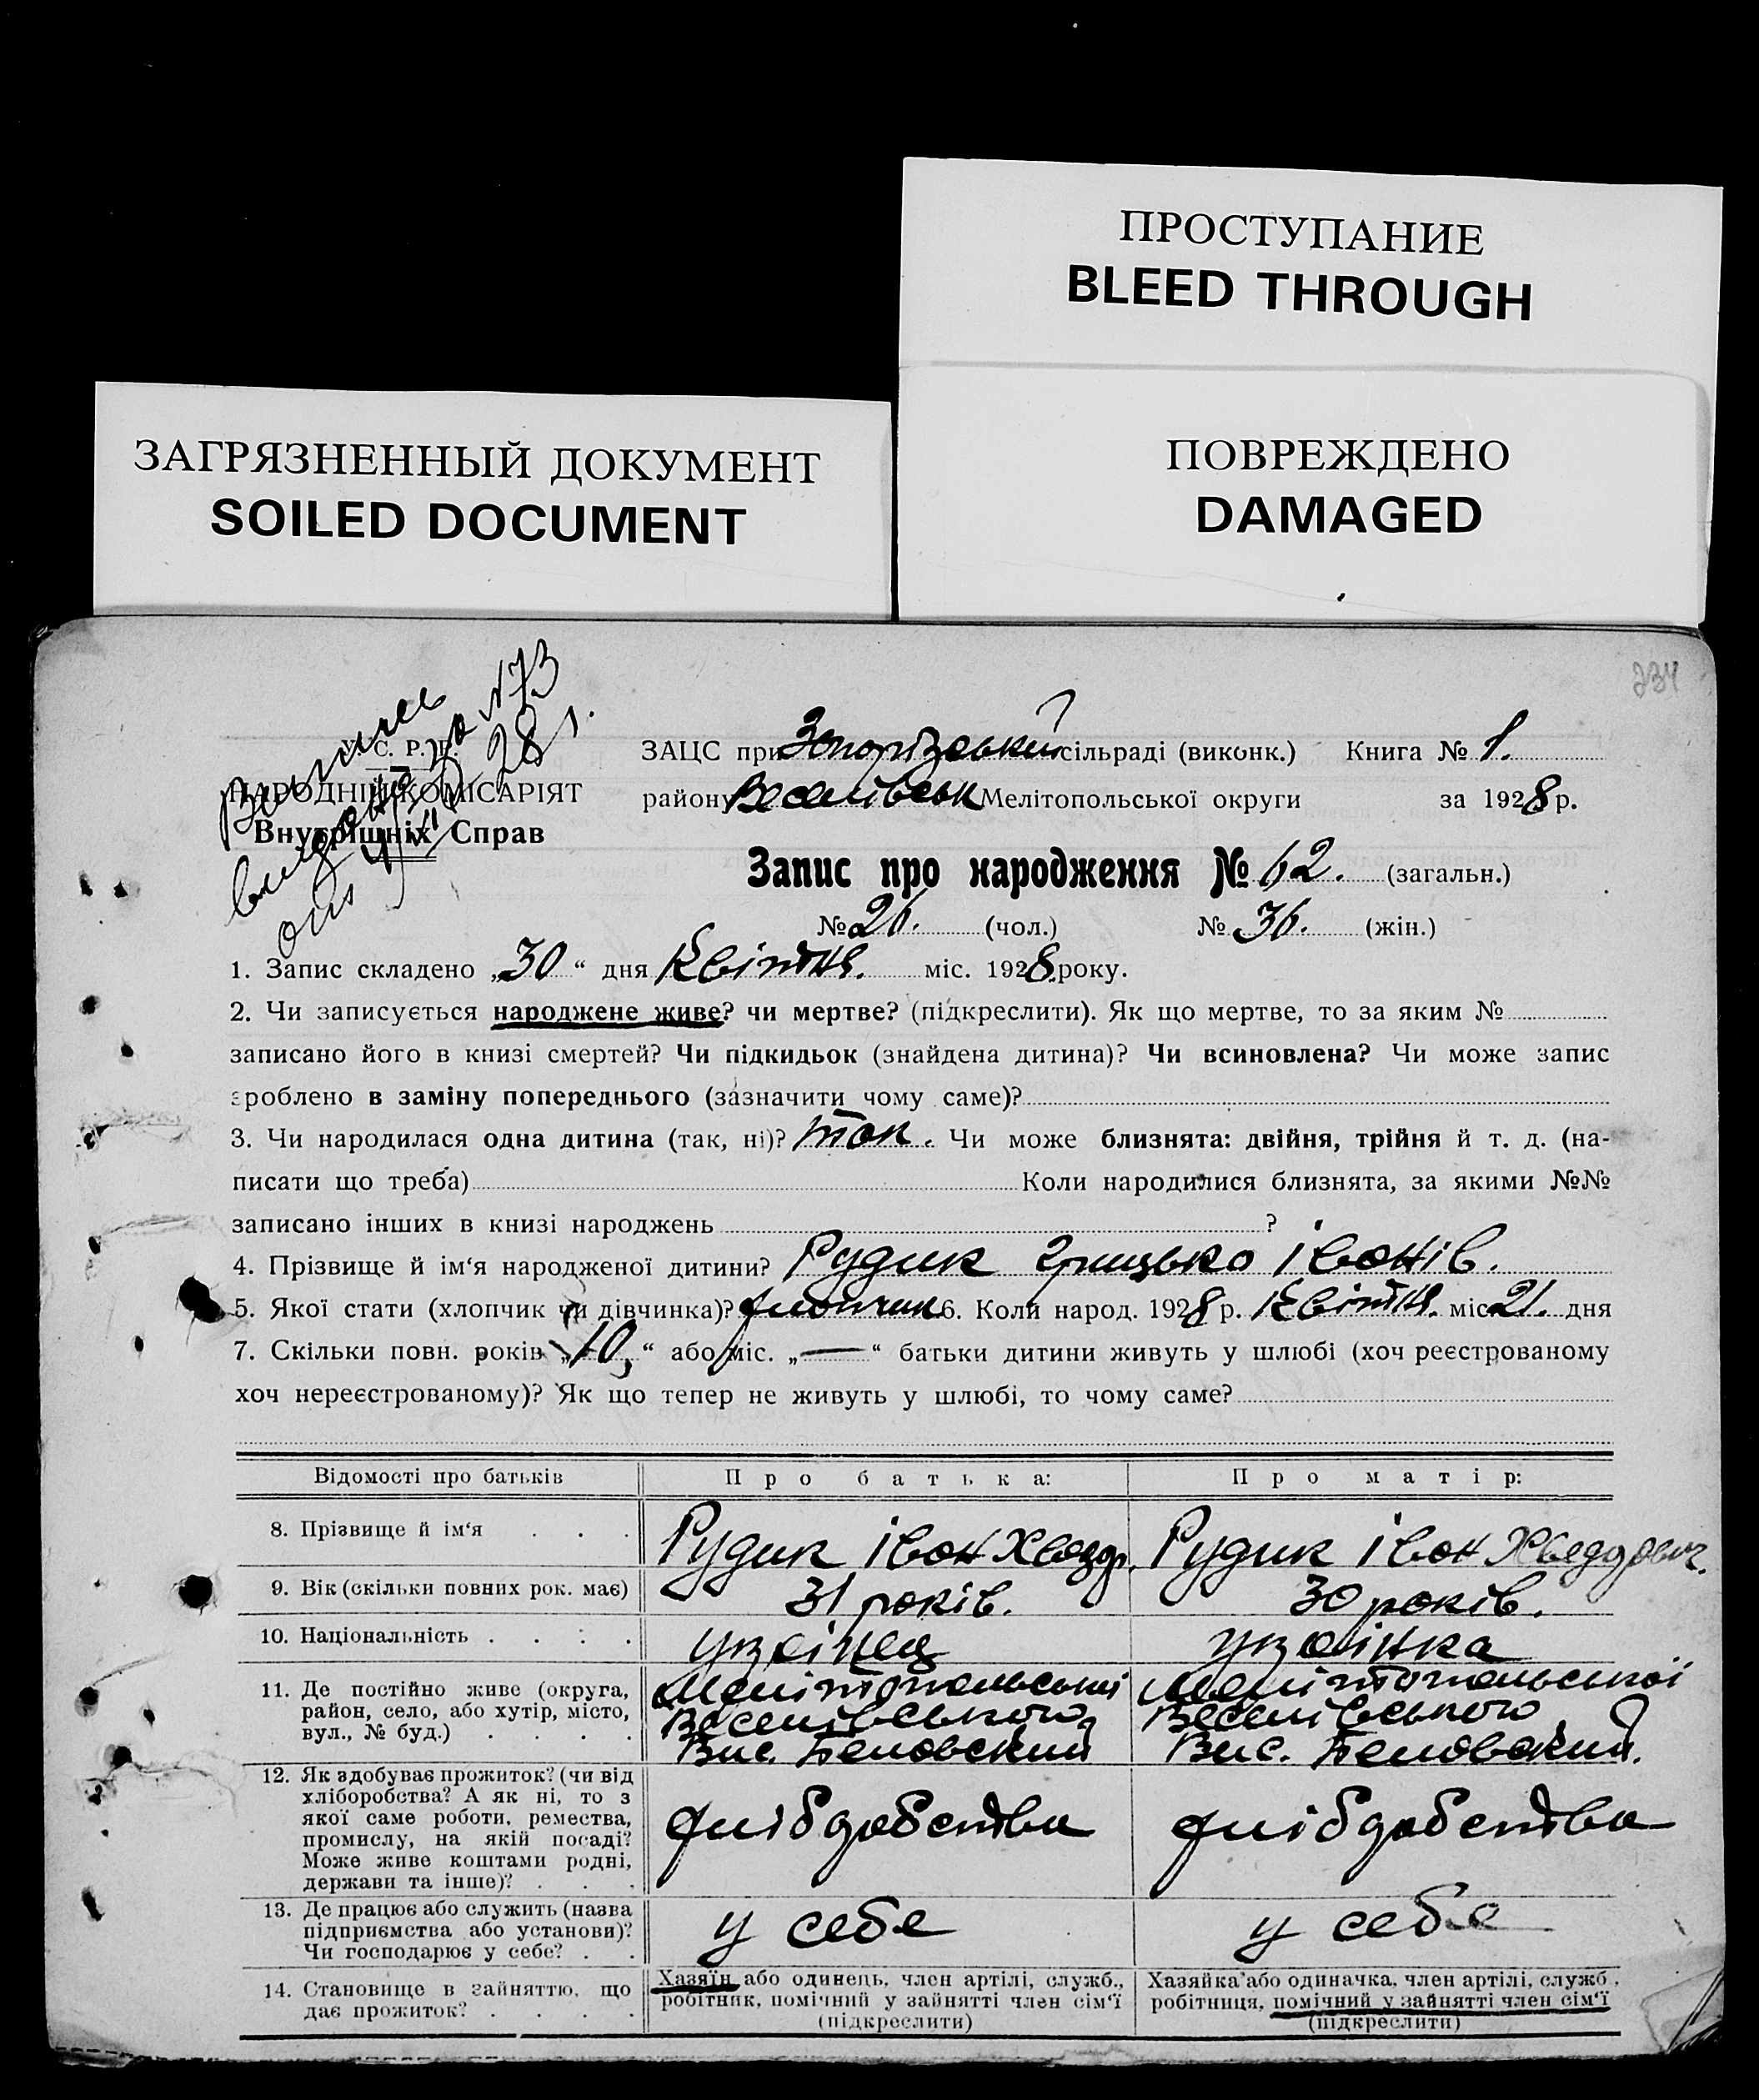 ПРОСТУПАНИЕ
BLEED THROUGH
ЗАГРЯЗНЕННЫЙ ДОКУМЕНТ
SOILED DOCUMENT
ПОВРЕЖДЕНО
DAMAGED
234
N 73
28 р.
У. С. Р. Р.
НАРОДНІЙ КОМІСАРІЯТ
Внутрішніх Справ
ЗАЦС при Запорізській сільраді (виконк.) Книга № 1.
району Веселівськ Мелітопольської округи за 1928 р.
Запис про народження № 62. (загальн.)
№ 26. (чол.) № 36. (жін.)
1. Запис складено „30“ дня Квітня. міс. 1928 року.
2. Чи записується народжене живе? чи мертве? (підкреслити). Як що мертве, то за яким №
записано його в книзі смертей? Чи підкидьок (знайдена дитина)? Чи всиновлена? Чи може запис
зроблено в заміну попереднього (зазначити чому саме)?
3. Чи народилася одна дитина (так, ні)? так. Чи може близнята: двійня, трійня й т. д. (на-
писати що треба) Коли народилися близнята, за якими №№
записано інших в книзі народжень ?
4. Прізвище й ім'я народженої дитини? Рудик Грицько Іванів.
5. Якої стати (хлопчик чи дівчинка)? хлопчик 6. Коли народ. 1928 р. Квітня. міс 21. дня
7. Скільки повн. років „10,“ або міс. „—“ батьки дитини живуть у шлюбі (хоч реєстрованому
хоч нереєстрованому)? Як що тепер не живуть у шлюбі, то чому саме?
Відомості про батьків Про батька: Про матір:
8. Прізвище й ім'я . . . Рудик Іван Хведр. Рудик Іван Хведорович.
9. Вік (скільки повних рок. має) 31 років. 30 років.
10. Національність . . . . украінец украінка
11. Де постійно живе (округа,
район, село, або хутір, місто,
вул., № буд.) . . . .
Мелітопольської
Веселівського
Вис. Беловский
Мелітопольської
Веселівського
Вис. Беловский.
12. Як здобуває прожиток? (чи від
хліборобства? А як ні, то з
якої саме роботи, ремества,
промислу, на якій посаді?
Може живе коштами родні,
держави та інше)? . . .
хлібробства
хлібробства
13. Де працює або служить (назва
підприємства або установи)?
Чи господарює у себе? . .
у себе
у себе
14. Становище в зайняттю, що
дає прожиток? . . . .
Хазяїн або одинець, член артілі, служб.,
робітник, помічний у зайнятті член сім'ї
(підкреслити)
Хазяйка або одиначка, член артілі, служб.,
робітниця, помічний у зайнятті член сім'ї
(підкреслити)